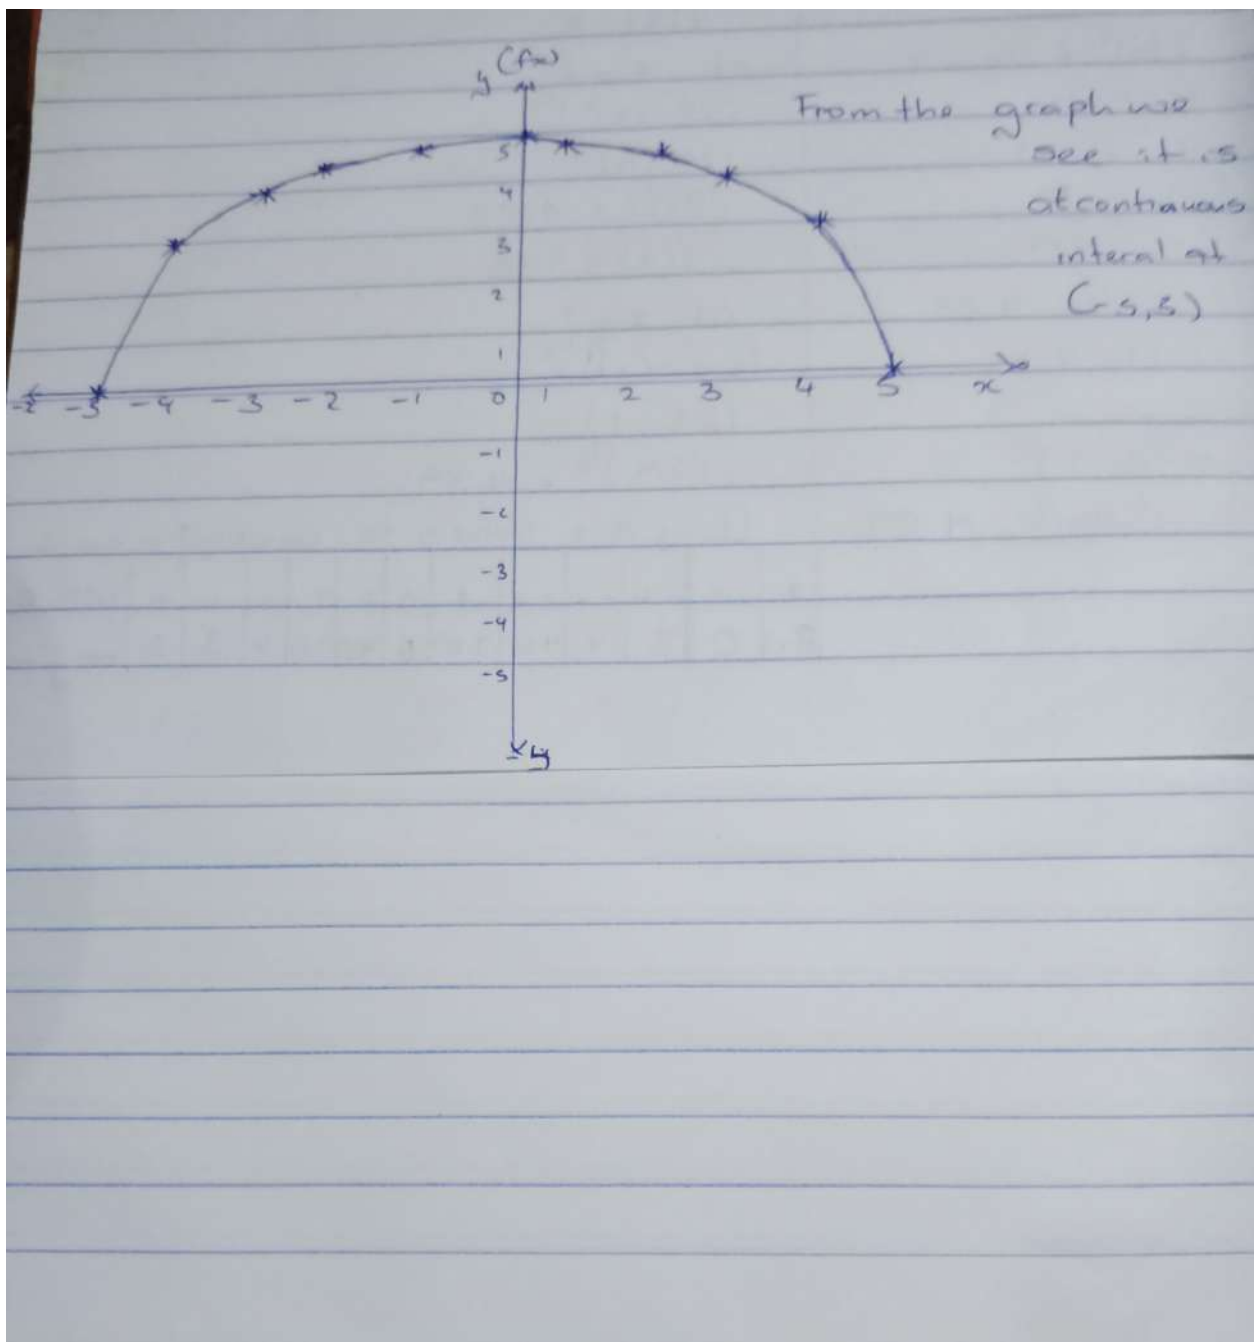 y (fx)
From the graph we
see it is
at continuous
interal at
(-5,5)
5
4
3
2
1
-5 -4 -3 -2 -1 0 1 2 3 4 5 x
-1
-2
-3
-4
-5
-y